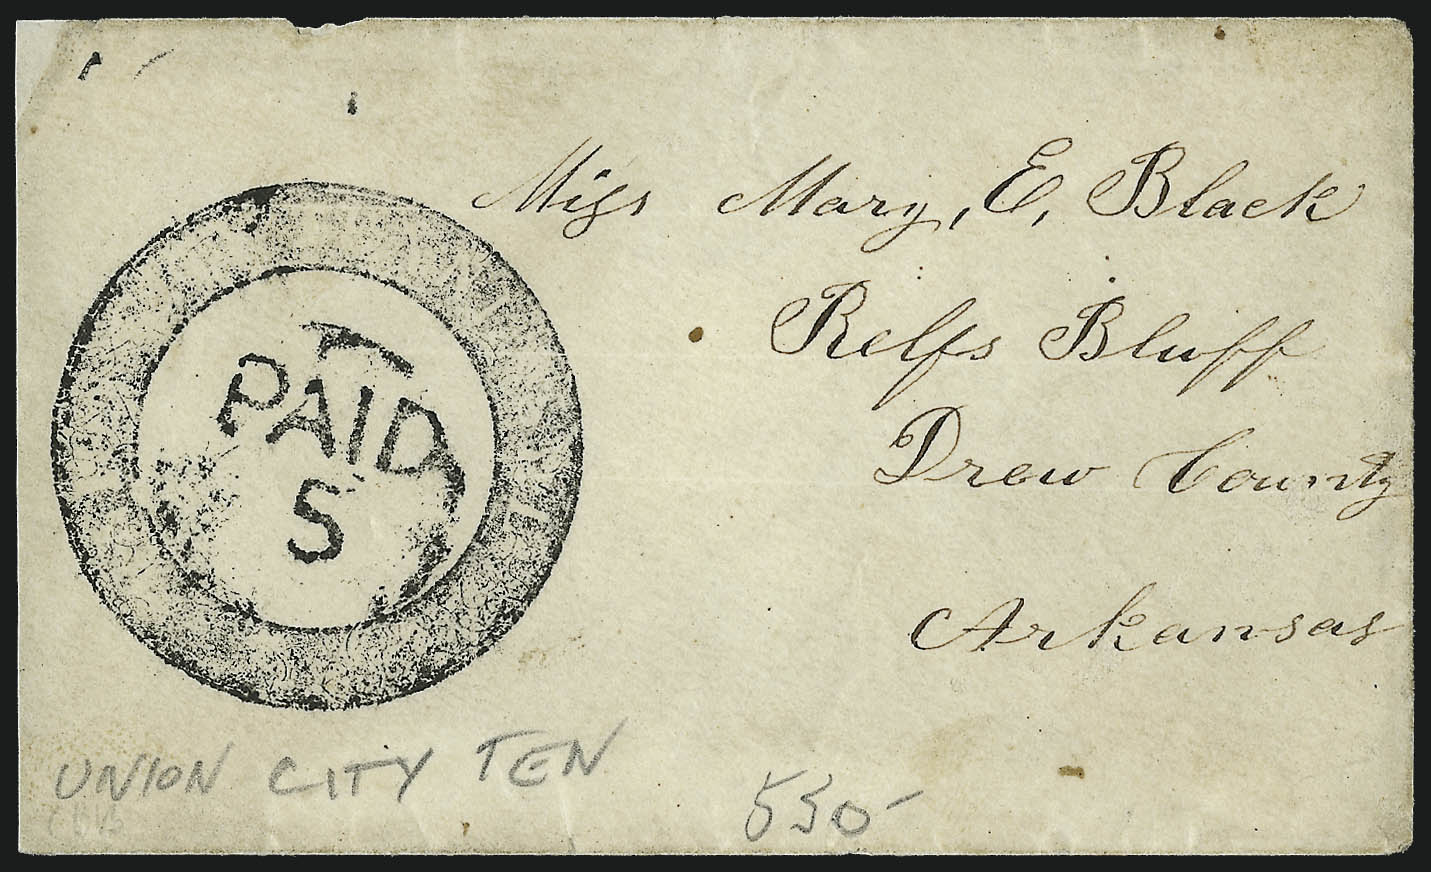 Miss Mary, E, Black
Relfs Bluff
Drew County
Arkansas
PAID
5
UNION CITY TEN
550-